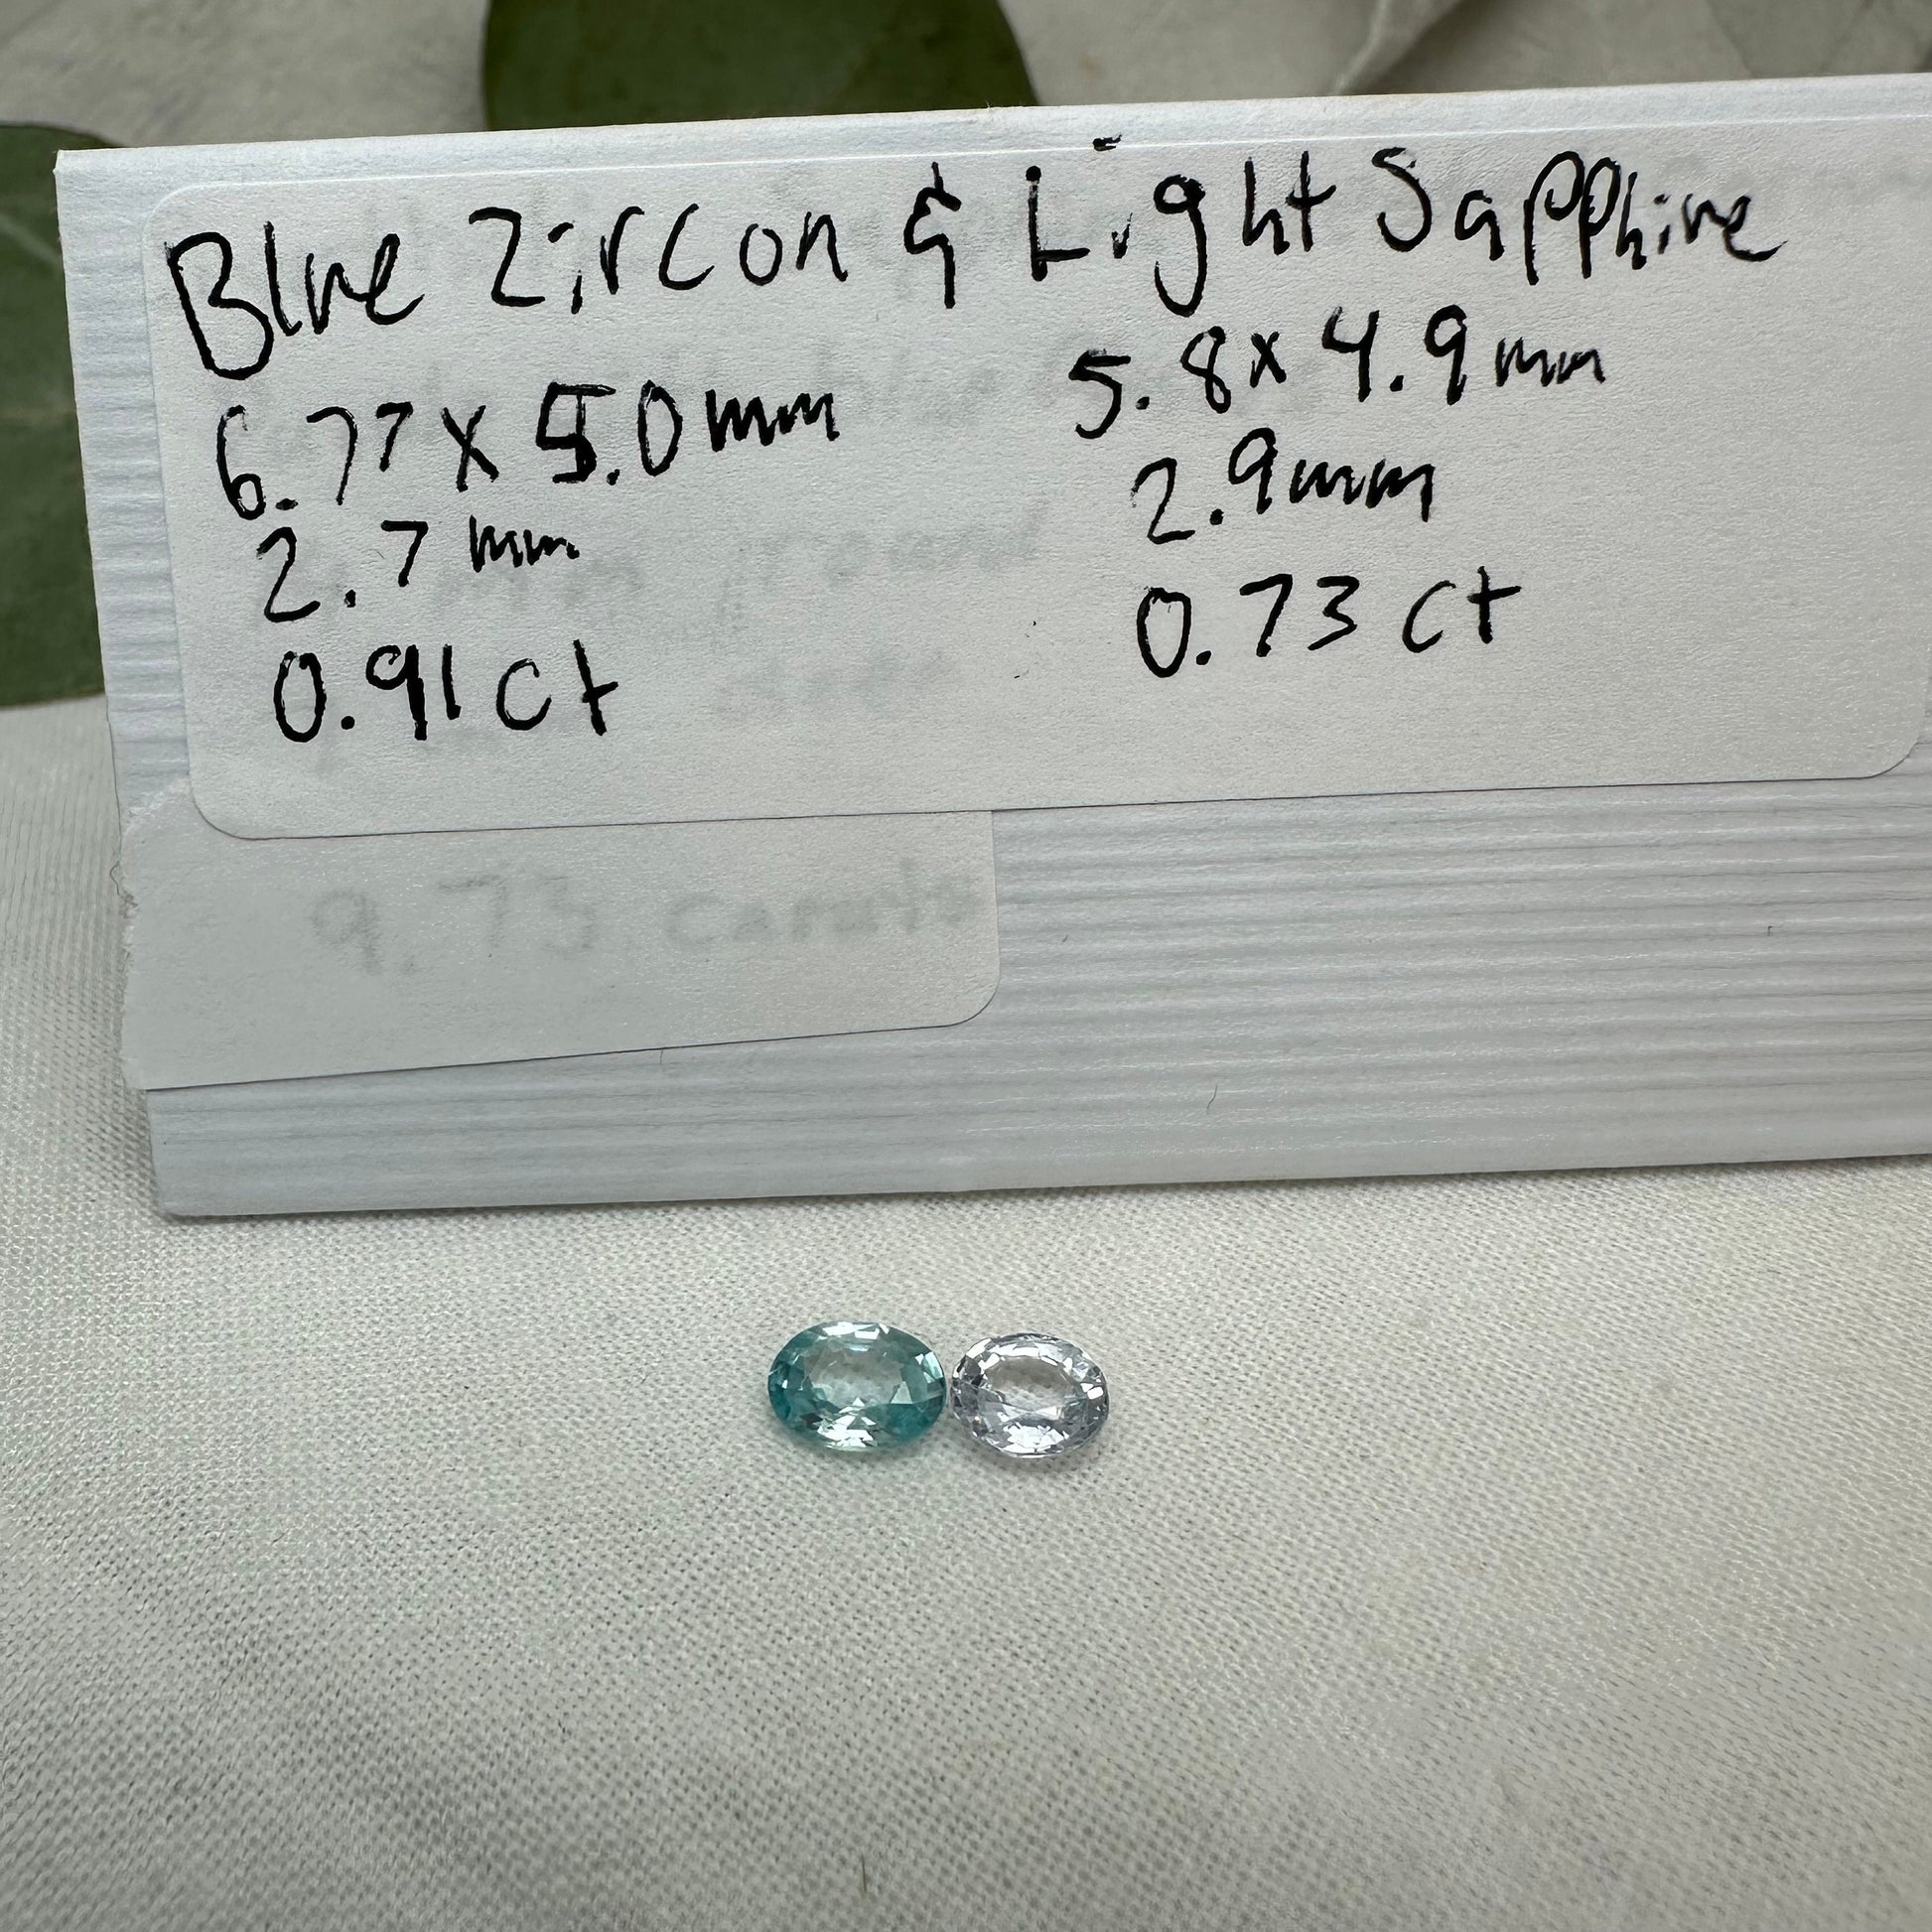 Blue Zircon & Light Sapphire
6.77 x 5.0 mm
2.7 mm
0.91 ct
5.8 x 4.9 mm
2.9 mm
0.73 ct
9.75 carats